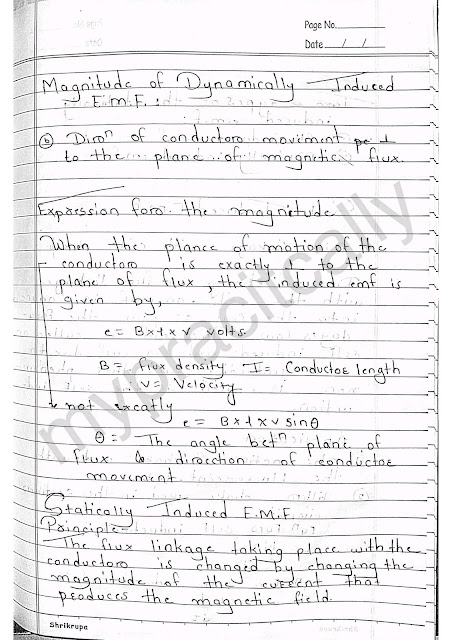 Page No.
Date / /
Magnitude of Dynamically Induced
E.M.F.:
(b) Dirⁿ of conductor movement ⊥
to the plane of magnetic flux.
Expression for the magnitude
When the plance of motion of the
conductor is exactly ⊥ to the
plane of flux, the induced emf is
given by,
e = B×l×v volts
B = flux density l = Conductor length
v = Velocity
not excatly
e = B×l×v sinθ
θ = The angle betⁿ plane of
flux & direction of conductor
movement
Statically Induced E.M.F.
Principle-
The flux linkage taking place with the
conductor is changed by changing the
magnitude of the current that
produces the magnetic field.
Shrikrupa
mypractically